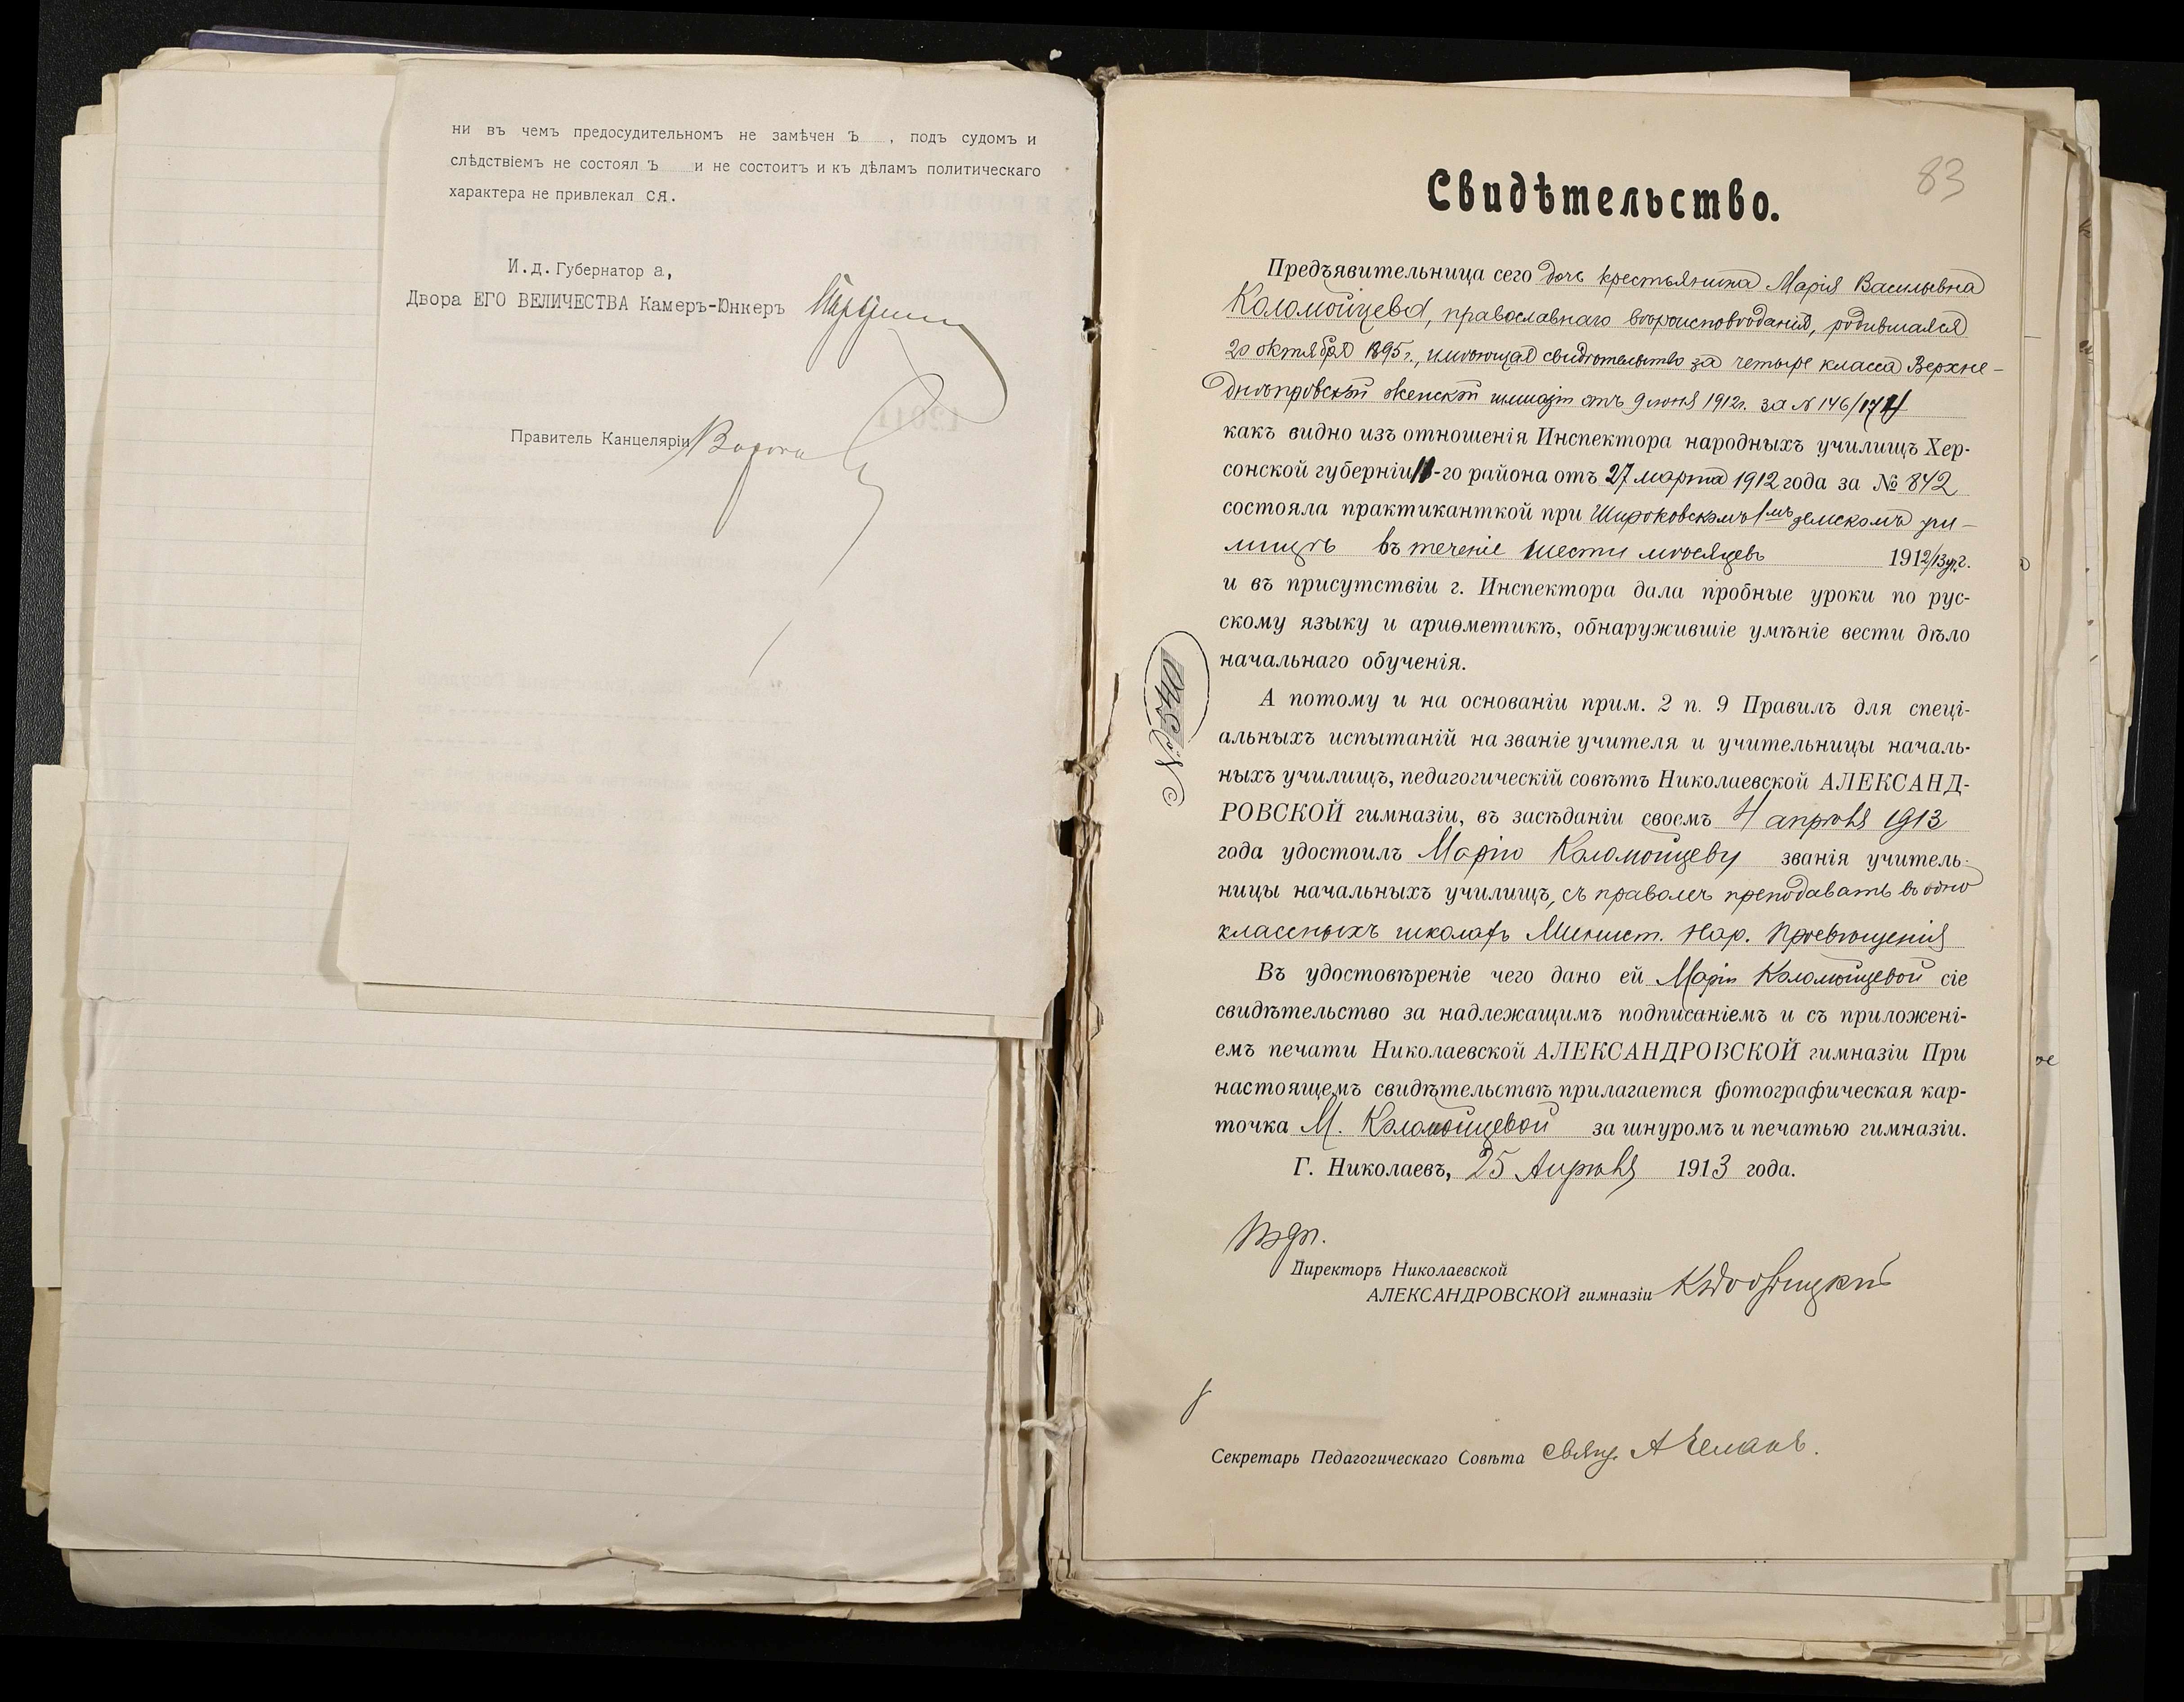 ни въ чемъ предосудительномъ не замѣчен ъ , подъ судомъ и
слѣдствіемъ не состоял ъ и не состоитъ и къ дѣламъ политическаго
характера не привлекал ся.
И.д. Губернатор а,
Двора ЕГО ВЕЛИЧЕСТВА Камеръ-Юнкеръ
Правитель Канцеляріи
83
Свидѣтельство.
Предъявительница сего дочь крестьянина Марія Васильевна
Коломойцева, православнаго вѣроисповѣданія, родившаяся
20 октября 1895 г., имѣющая свидѣтельство за четыре класса Верхне-
днѣпровской женской гимназіи отъ 9 іюня 1912г. за № 146/174
какъ видно изъ отношенія Инспектора народныхъ училищъ Хер-
сонской губерніи -го района отъ 27 марта 1912 года за № 842
состояла практиканткой при Широковскомъ 1мъ земскомъ учи-
лищѣ въ теченіе шести мѣсяцевъ 1912/13 уч. г.
и въ присутствіи г. Инспектора дала пробные уроки по рус-
скому языку и ариѳметикѣ, обнаружившіе умѣніе вести дѣло
начальнаго обученія.
№ 540
А потому и на основаніи прим. 2 п. 9 Правилъ для спеці-
альныхъ испытаній на званіе учителя и учительницы началь-
ныхъ училищъ, педагогическій совѣтъ Николаевской АЛЕКСАНД-
РОВСКОЙ гимназіи, въ засѣданіи своемъ 4 апрѣля 1913
года удостоилъ Марію Коломойцеву званія учитель-
ницы начальныхъ училищъ, съ правомъ преподавать въ одно
классныхъ школахъ Минист. Нар. Просвѣщенія
Въ удостовѣреніе чего дано ей Маріи Коломойцевой сіе
свидѣтельство за надлежащимъ подписаніемъ и съ приложені-
емъ печати Николаевской АЛЕКСАНДРОВСКОЙ гимназіи При
настоящемъ свидѣтельствѣ прилагается фотографическая кар-
точка М. Коломойцевой за шнуромъ и печатью гимназіи.
Г. Николаевъ, 25 Апрѣля 1913 года.
Директоръ Николаевской
АЛЕКСАНДРОВСКОЙ гимназіи
Секретарь Педагогическаго Совѣта свящ. А